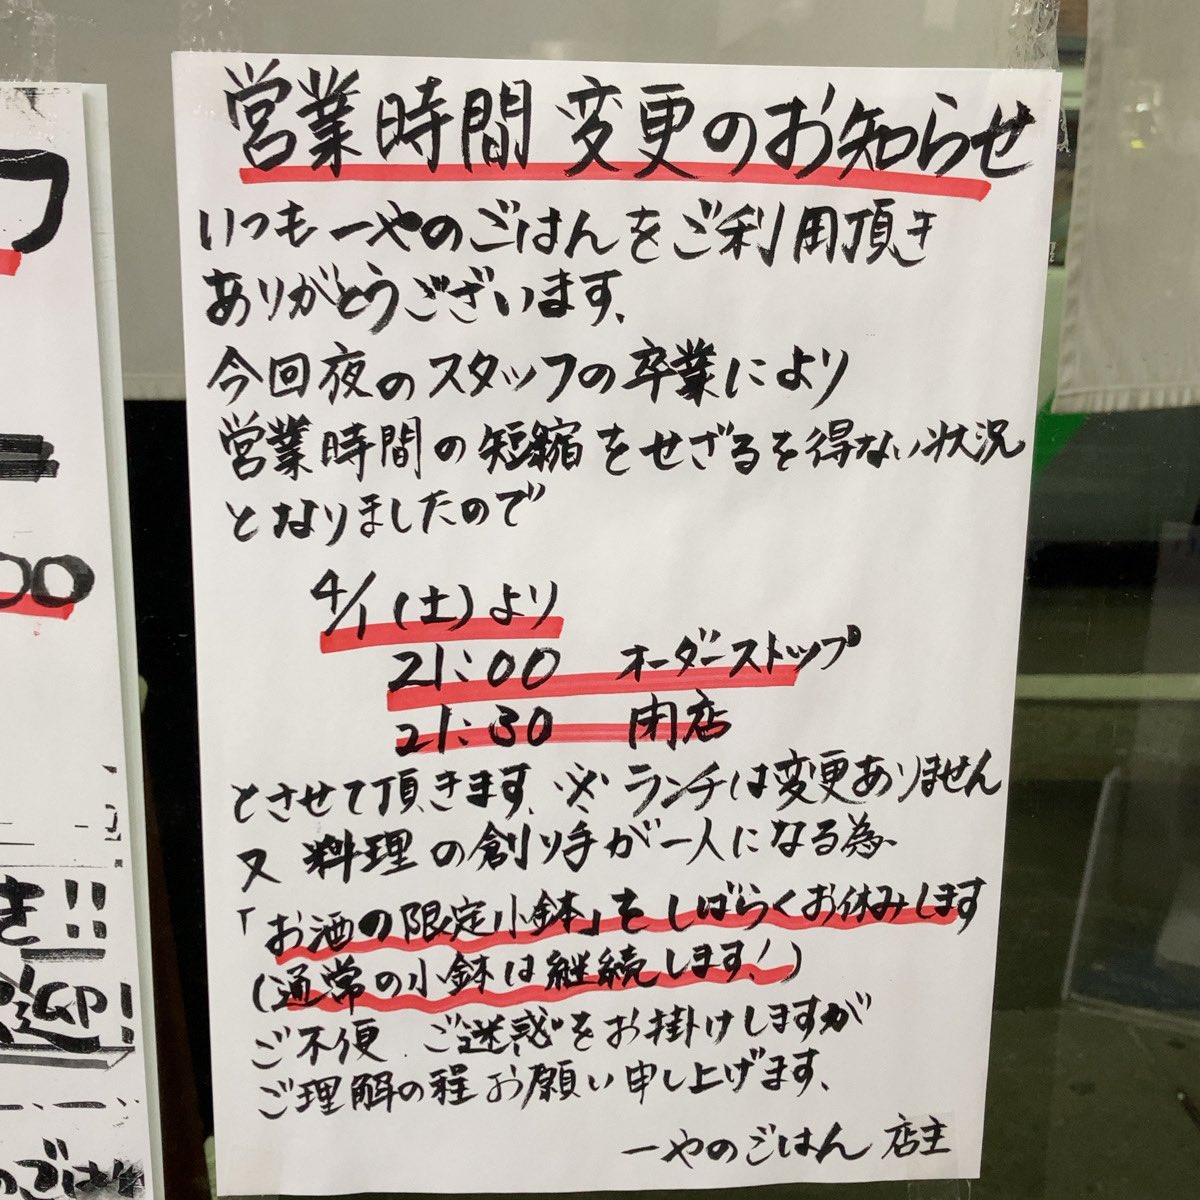 営業時間変更のお知らせ
いつも一やのごはんをご利用頂き
ありがとうございます、
今回夜のスタッフの卒業により
営業時間の短縮をせざるを得ない状況
となりましたので
4/1(土)より
21:00 オーダーストップ
21:30 閉店
とさせて頂きます、※ランチは変更ありません
又 料理の創り手が一人になる為
「お酒の限定小鉢」をしばらくお休みします
(通常の小鉢は継続します!)
ご不便 ご迷惑をお掛けしますが
ご理解の程お願い申し上げます、
一やのごはん 店主
フ
00
き!!
GP!
のごはん